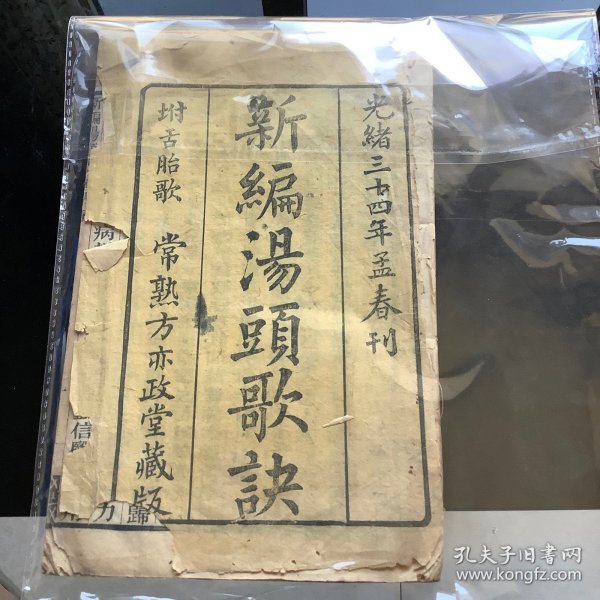 光緒三十四年孟春刊
新編湯頭歌訣
坿舌胎歌
常熟方亦政堂藏版
病
信
力
歸
孔夫子旧书网
www.kongfz.com